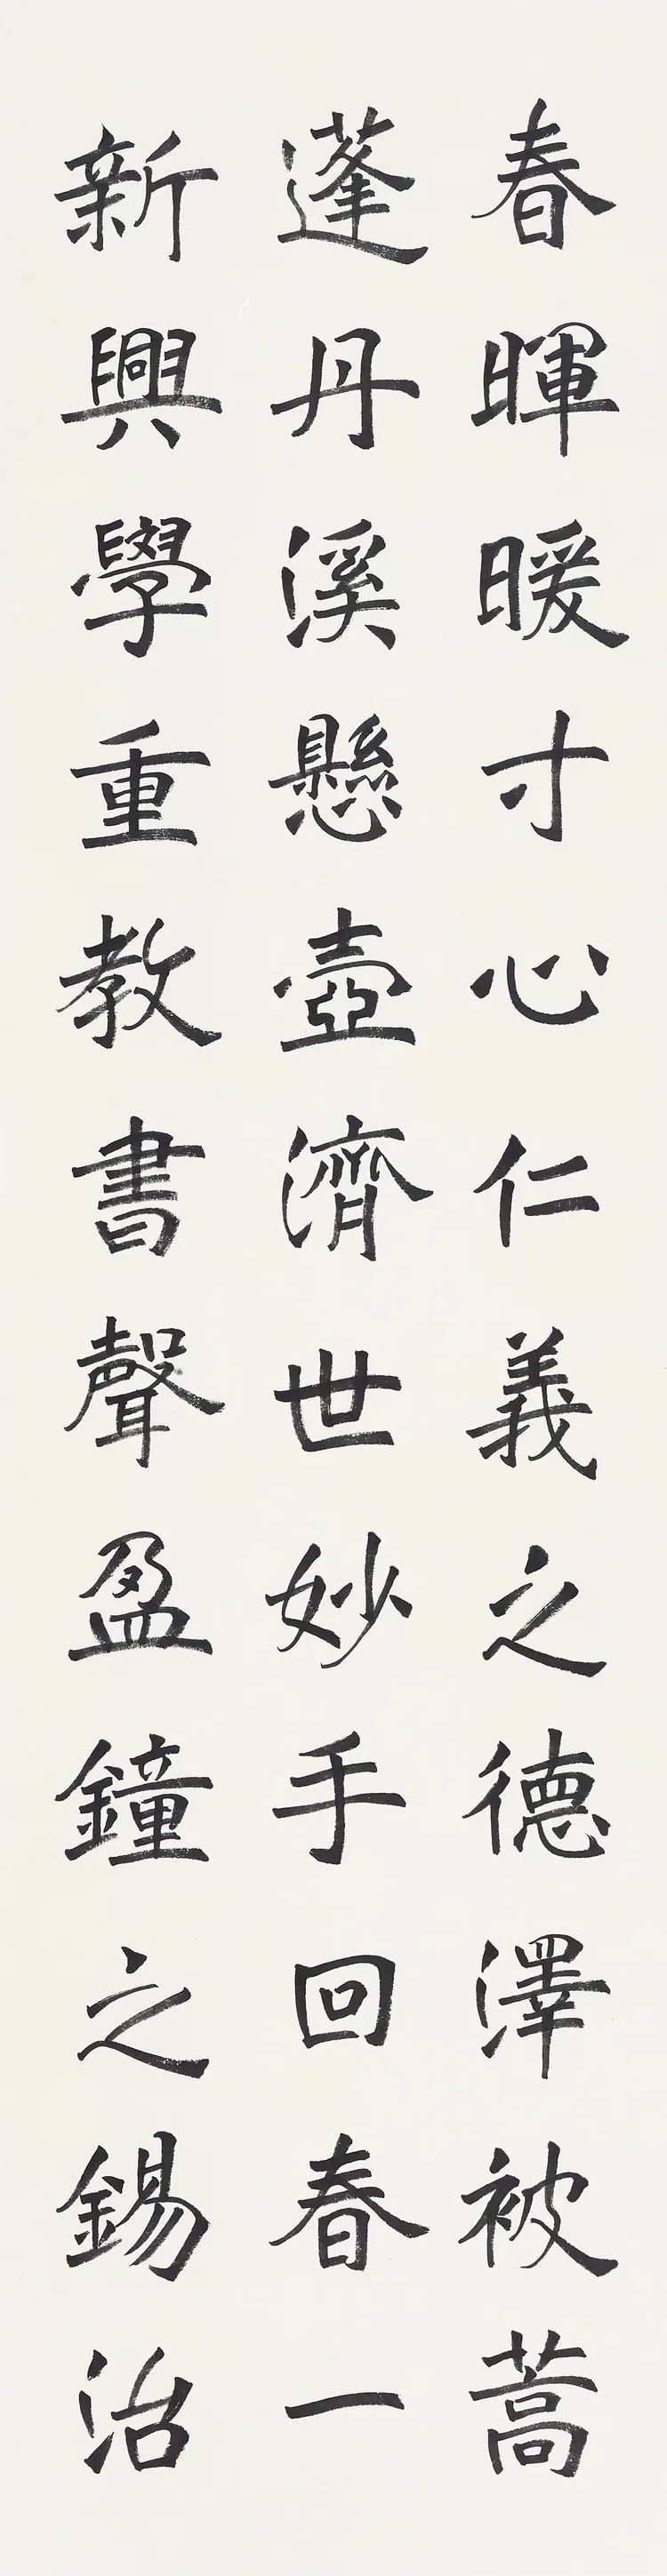 春暉暖寸心仁義之德澤被蒿
蓬丹溪懸壺濟世妙手回春一
新興學重教書聲盈鐘之錫治